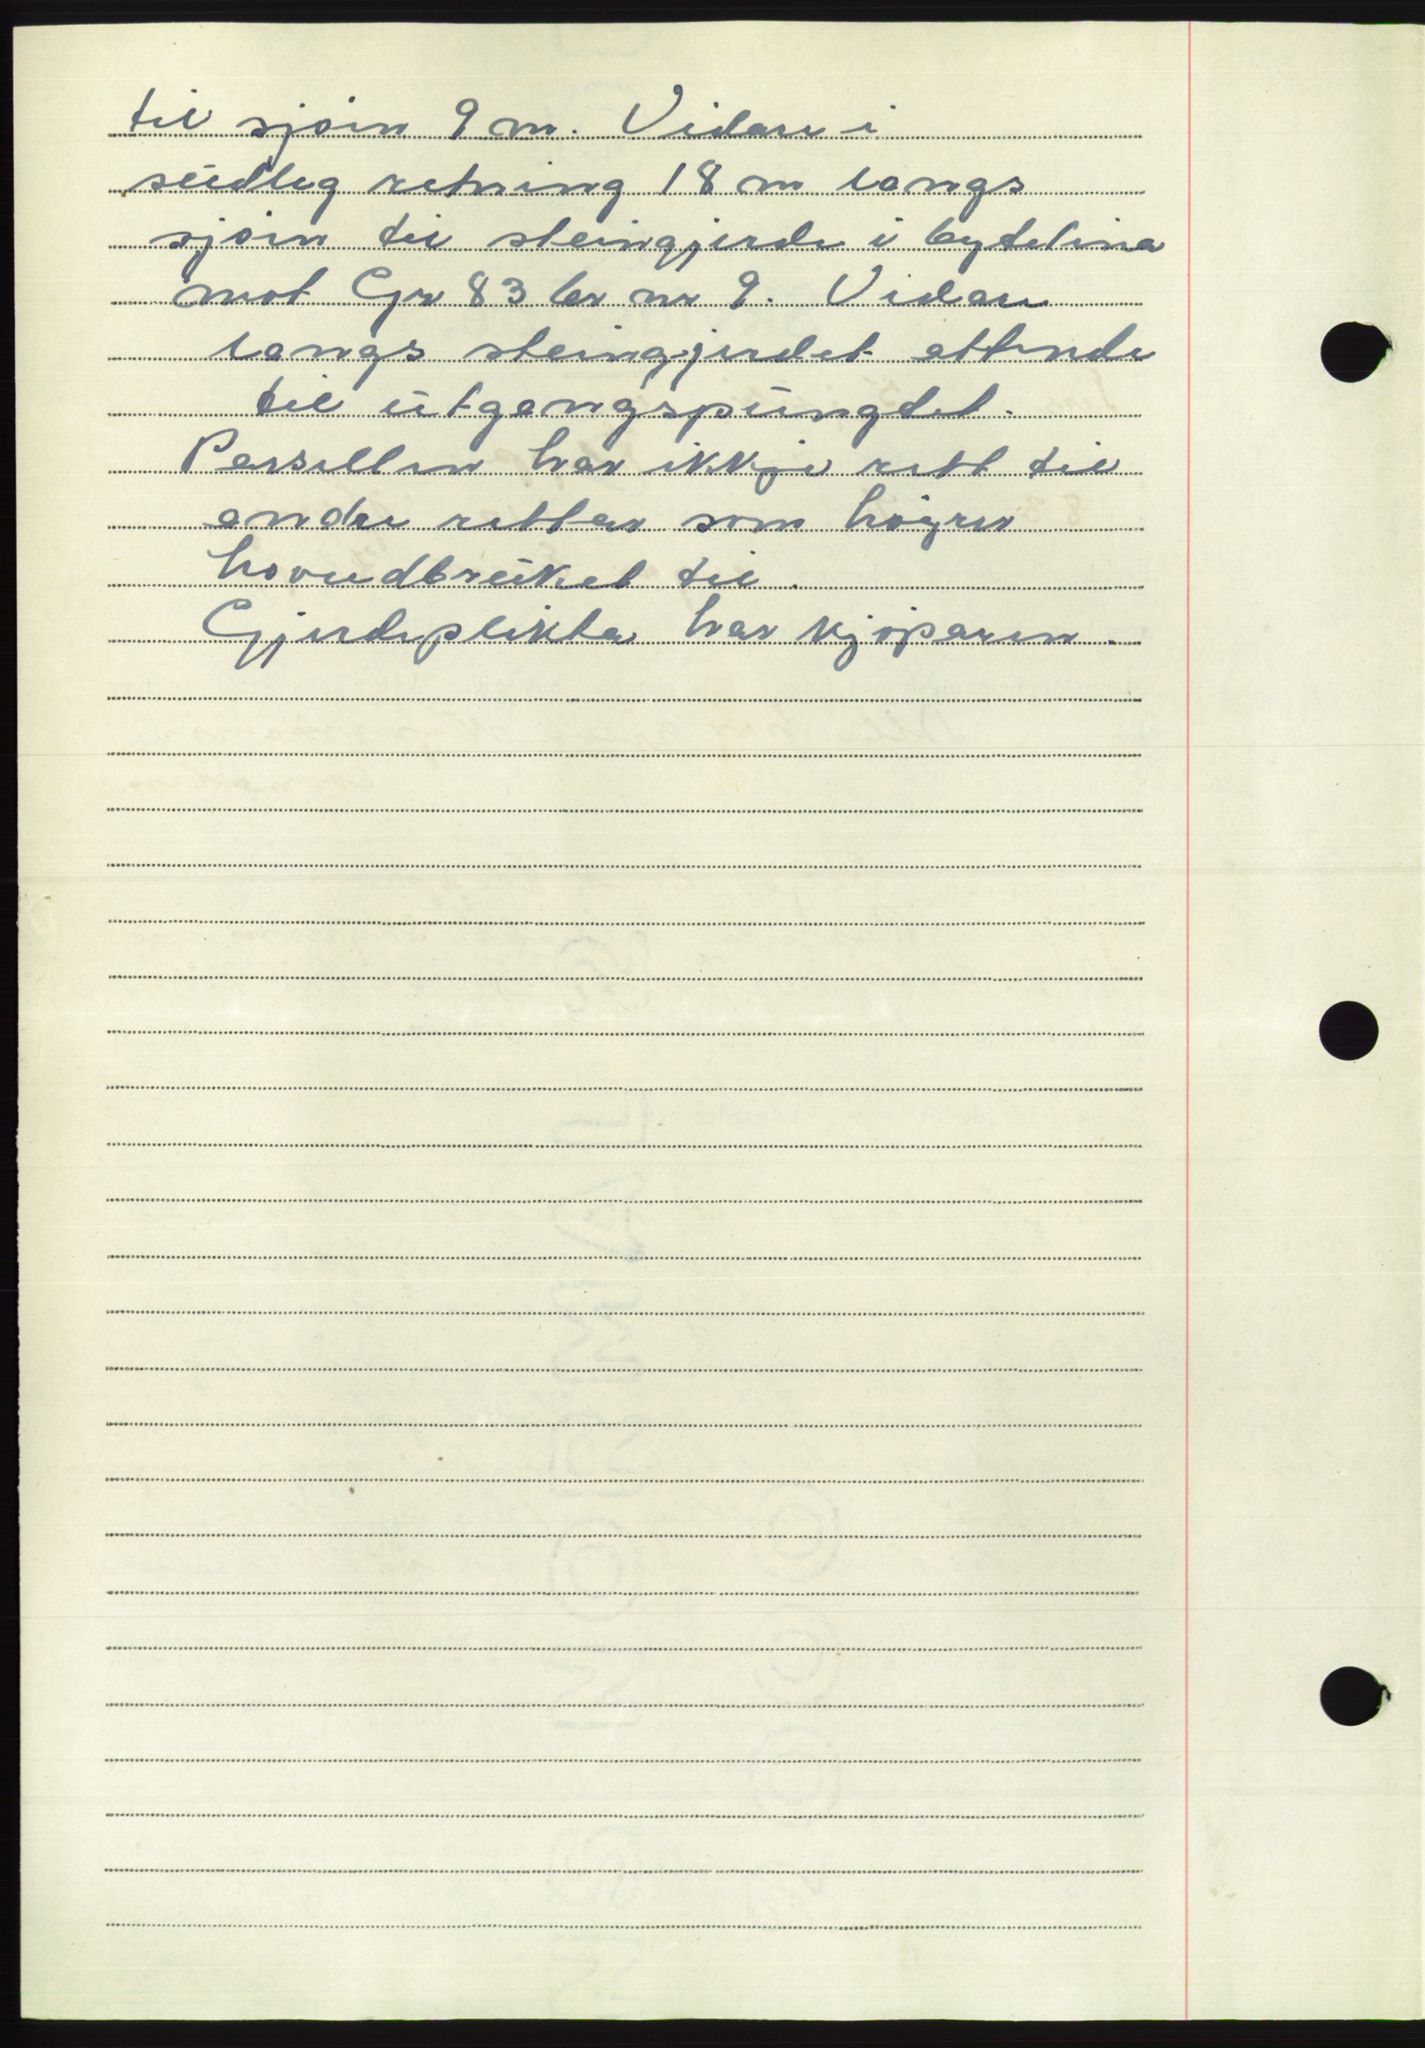 til sjøen 9 m. Vidare i
südleg retning 18 m langs
sjøen til steingjerde i bytelina
mot Gr 83 br nr 9. Vidare
langs steingjerdet attende
til ütgangspüngdet.
Parsellen har ikkje rett til
andre rettar som høgrer
hovüdbrüket til.
Gjerdeplikta har kjøparen.